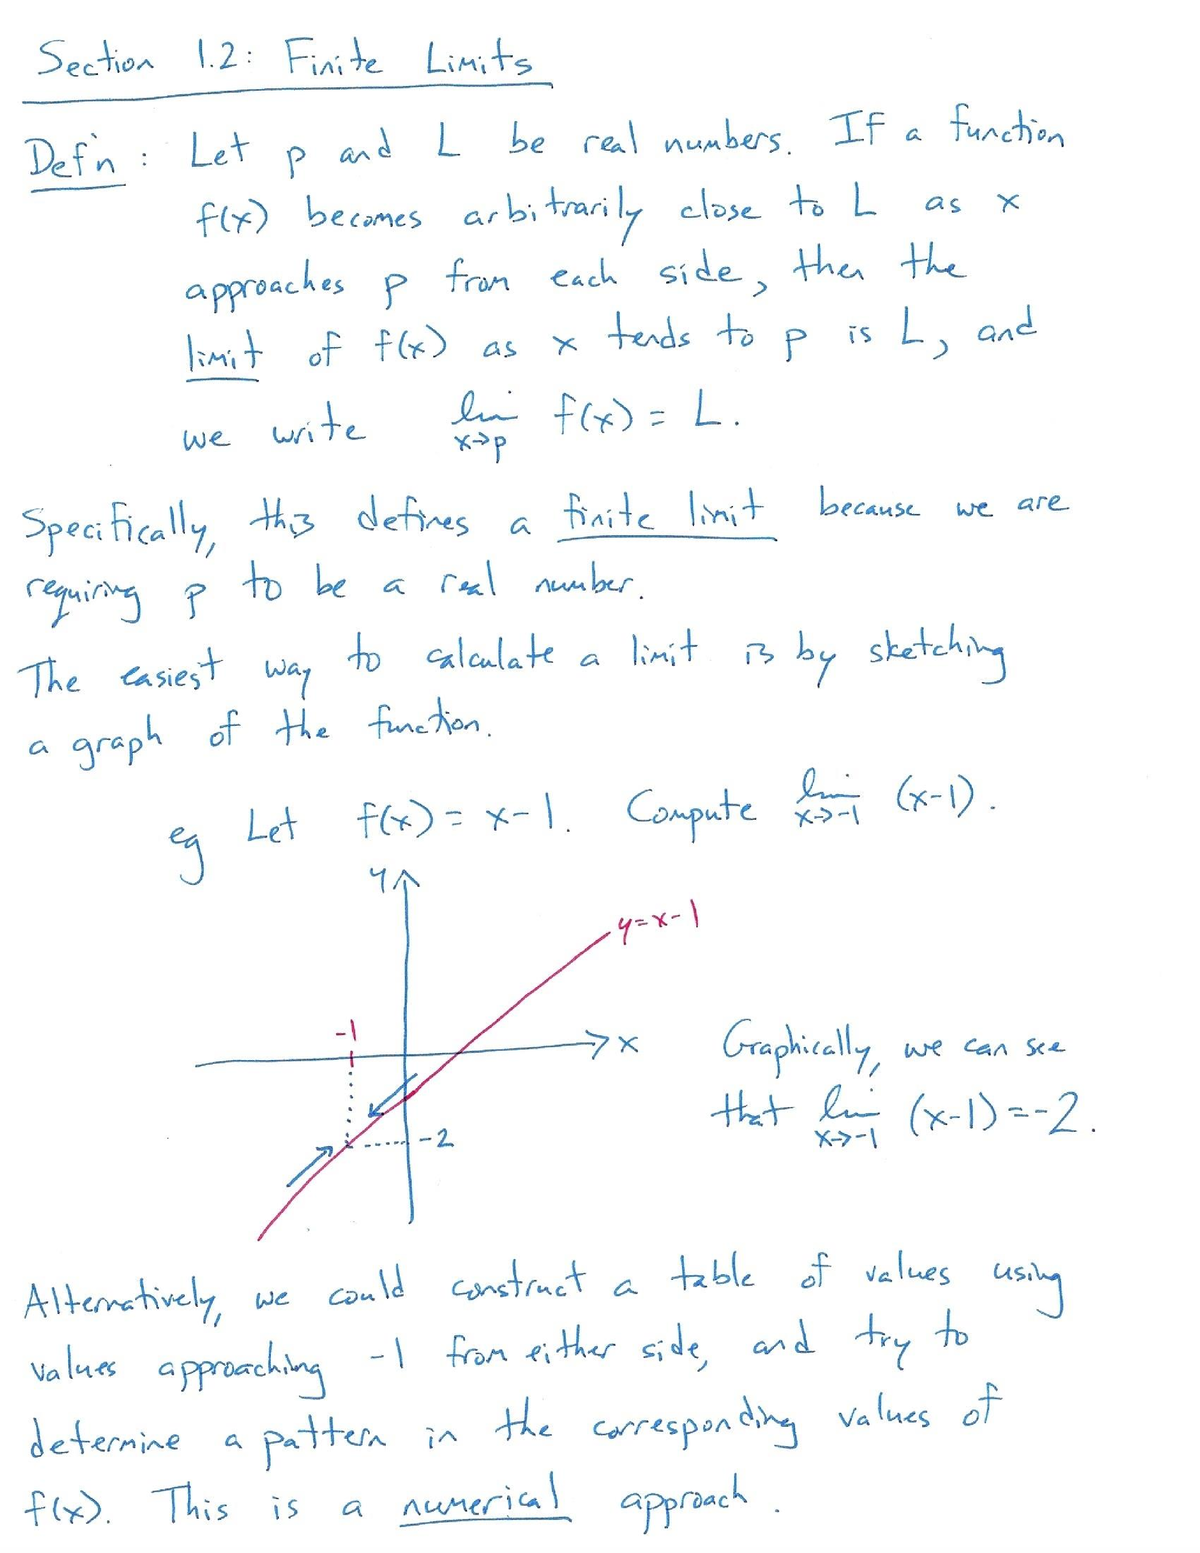 Section 1.2: Finite Limits
Def'n: Let p and L be real numbers. If a function
f(x) becomes arbitrarily close to L as x
approaches p from each side, then the
limit of f(x) as x tends to p is L, and
we write lim x→p f(x) = L.
Specifically, this defines a finite limit because we are
requiring p to be a real number.
The easiest way to calculate a limit is by sketching
a graph of the function.
eg Let f(x) = x-1. Compute lim x→-1 (x-1).
y
y=x-1
-1
x
Graphically, we can see
that lim x→-1 (x-1) = -2.
-2
Alternatively, we could construct a table of values using
values approaching -1 from either side, and try to
determine a pattern in the corresponding values of
f(x). This is a numerical approach.